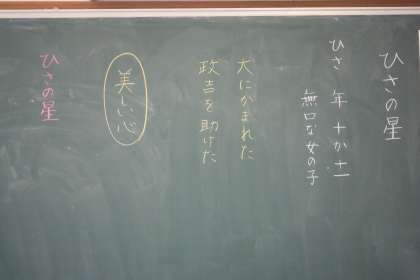 ひさの星
ひさ 年 十か十一
無口な女の子
犬にかまれた
政吉を助けた
美しい心
ひさの星